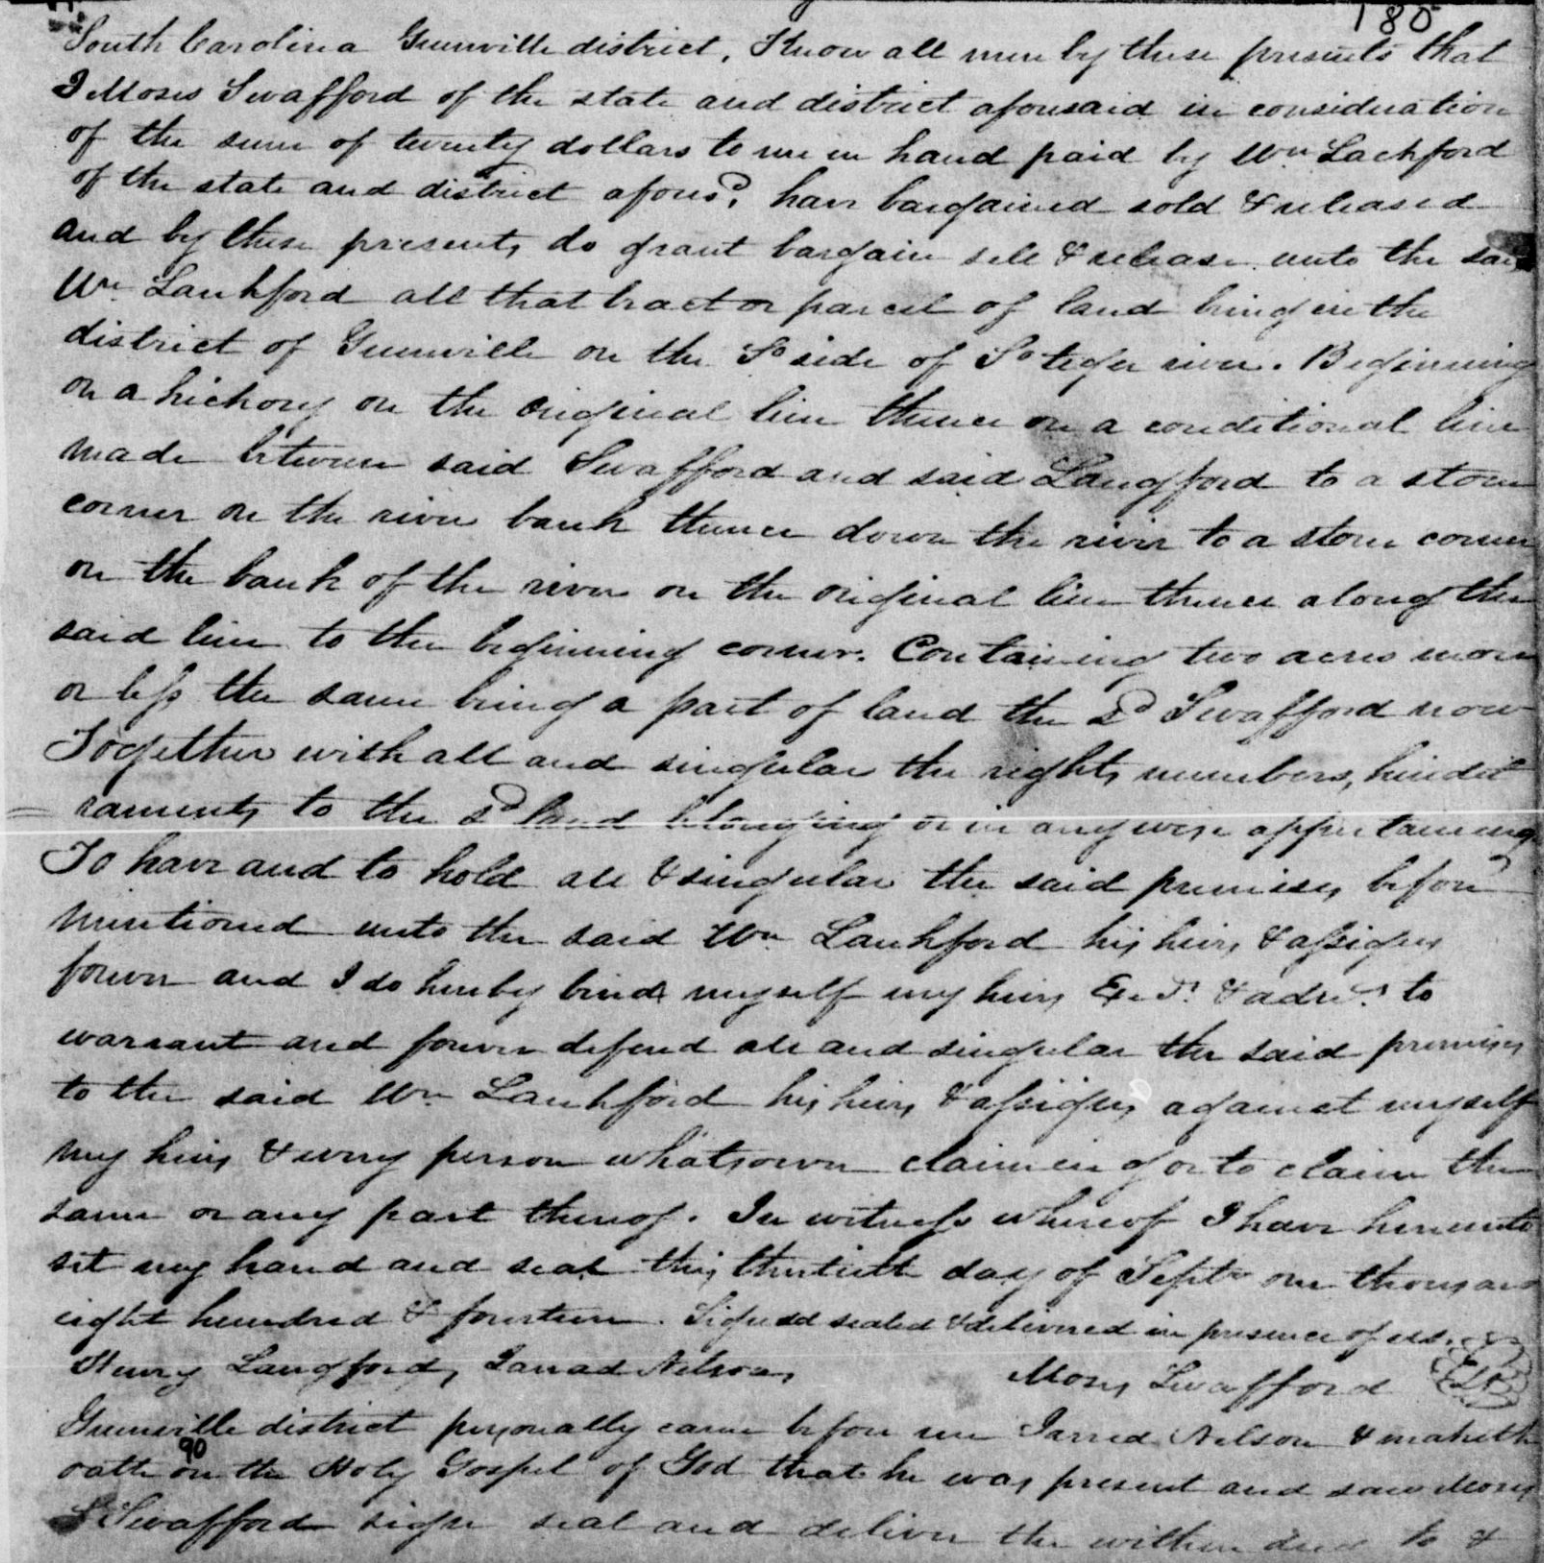 180
South Carolina Greenville district, Know all men by these presents that
I Moses Swafford of the state and district aforesaid in consideration
of the sum of twenty dollars to me in hand paid by Wm Lackford
of the state and district aforesd. have bargained sold & released
and by these presents do grant bargain sell & release unto the said
Wm. Lankford all that tract or parcel of land being in the
district of Greenville on the So side of So tiger river. Beginning
on a hickory on the original line thence on a conditional line
made between said Swafford and said Langford to a stone
corner on the river bank thence down the river to a stone corner
on the bank of the river on the original line thence along the
said line to the beginning corner. Containing two acres more
or less the same being a part of land the sd Swafford now
Together with all and singular the rights members, heredit
= raments to the sd land belonging or in any wise appertaining
To have and to hold all & singular the said premises before
mentioned unto the said Wm Lankford his heirs & assigns
forever and I do hereby bind myself my heirs Exrs. & adrs. to
warrant and forever defend all and singular the said premises
to the said Wm Lankford his heirs & assigns against myself
my heirs & every person whatsoever claiming or to claim the
same or any part thereof. In witness whereof I have hereunto
set my hand and seal this thirtieth day of Septr one thousand
eight hundred & fourteen. Signed sealed & delivered in presence of us.
Henry Langford, Jarrad Nelson, Moses Swafford LS
Greenville district personally came before me Jarred Nelson & maketh
oath on the Holy Gospel of God that he was present and saw Moses
90
Swafford sign seal and deliver the within deed to &